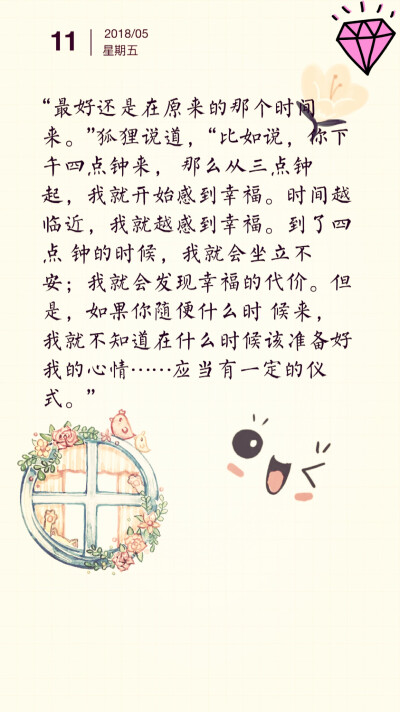 11
2018/05
星期五
“最好还是在原来的那个时间
来。”狐狸说道，“比如说，你下
午四点钟来， 那么从三点钟
起，我就开始感到幸福。时间越
临近，我就越感到幸福。到了四
点 钟的时候，我就会坐立不
安；我就会发现幸福的代价。但
是，如果你随便什么时 候来，
我就不知道在什么时候该准备好
我的心情……应当有一定的仪
式。”